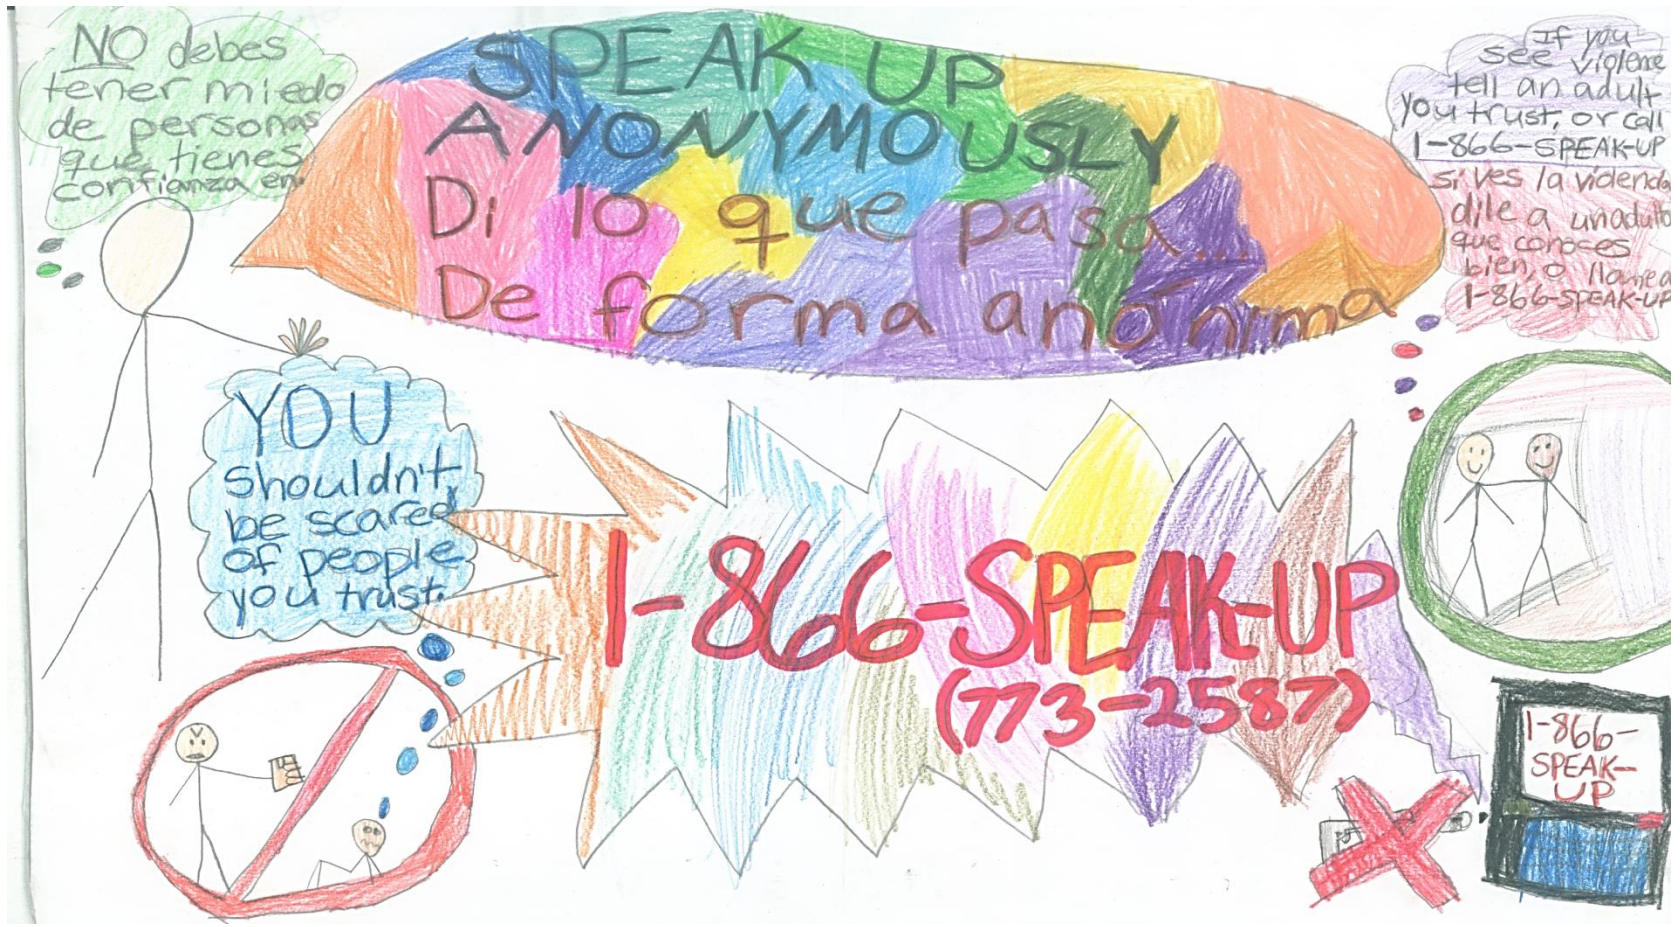 NO debes
tener miedo
de personas
que tienes
confianza en.
SPEAK UP
ANONYMOUSLY
Di lo que pasa...
De forma anónima
If you
see violence
tell an adult
you trust, or call
1-866-SPEAK-UP
si ves la violencia
dile a un adulto
que conoces
bien, o llame a
1-866-SPEAK-UP
YOU
shouldn't
be scared
of people
you trust.
1-866-SPEAK-UP
(773-2587)
1-866-
SPEAK-
UP